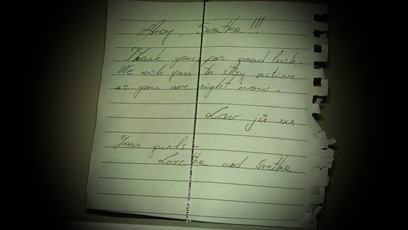 Ahoj, Svetka !!!
Thank you for good luck.
We wish you to stay active
as you are right now.
Lav jü
Your girls -
and Svetka